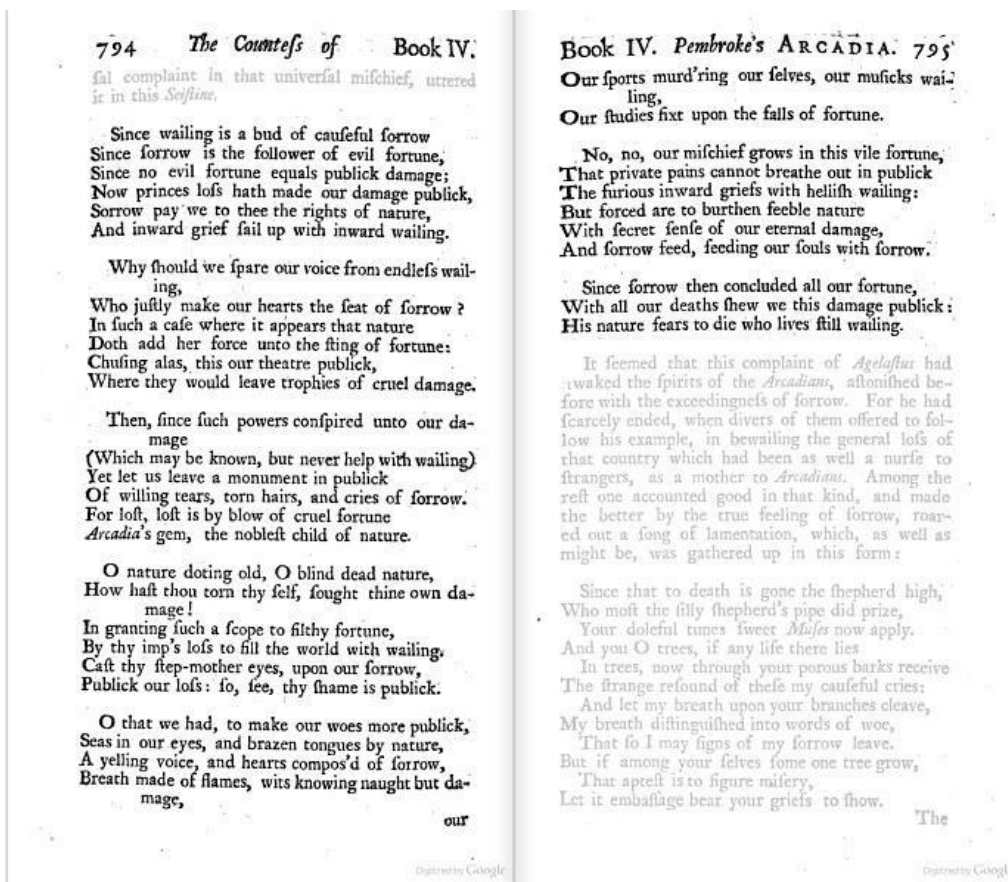 794 The Counteſs of Book IV.
ſal complaint in that univerſal miſchief, uttered
it in this Seiſtine.
Since wailing is a bud of cauſeful ſorrow
Since ſorrow is the follower of evil fortune,
Since no evil fortune equals publick damage;
Now princes loſs hath made our damage publick,
Sorrow pay we to thee the rights of nature,
And inward grief ſail up with inward wailing.
Why ſhould we ſpare our voice from endleſs wail-
ing,
Who juſtly make our hearts the ſeat of ſorrow?
In ſuch a caſe where it appears that nature
Doth add her force unto the ſting of fortune:
Chuſing alas, this our theatre publick,
Where they would leave trophies of cruel damage.
Then, ſince ſuch powers conſpired unto our da-
mage
(Which may be known, but never help with wailing)
Yet let us leave a monument in publick
Of willing tears, torn hairs, and cries of ſorrow.
For loſt, loſt is by blow of cruel fortune
Arcadia's gem, the nobleſt child of nature.
O nature doting old, O blind dead nature,
How haſt thou torn thy ſelf, ſought thine own da-
mage!
In granting ſuch a ſcope to filthy fortune,
By thy imp's loſs to fill the world with wailing.
Caſt thy ſtep-mother eyes, upon our ſorrow,
Publick our loſs: ſo, ſee, thy ſhame is publick.
O that we had, to make our woes more publick,
Seas in our eyes, and brazen tongues by nature,
A yelling voice, and hearts compos'd of ſorrow,
Breath made of flames, wits knowing naught but da-
mage,
our
Digitized by Google
Book IV. Pembroke's ARCADIA. 795
Our ſports murd'ring our ſelves, our muſicks wai-
ling,
Our ſtudies fixt upon the falls of fortune.
No, no, our miſchief grows in this vile fortune,
That private pains cannot breathe out in publick
The furious inward griefs with helliſh wailing:
But forced are to burthen feeble nature
With ſecret ſenſe of our eternal damage,
And ſorrow feed, feeding our ſouls with ſorrow.
Since ſorrow then concluded all our fortune,
With all our deaths ſhew we this damage publick:
His nature fears to die who lives ſtill wailing.
It ſeemed that this complaint of Agelaſtus had
waked the ſpirits of the Arcadians, aſtoniſhed be-
fore with the exceedingneſs of ſorrow. For he had
ſcarcely ended, when divers of them offered to fol-
low his example, in bewailing the general loſs of
that country which had been as well a nurſe to
ſtrangers, as a mother to Arcadians. Among the
reſt one accounted good in that kind, and made
the better by the true feeling of ſorrow, roar-
ed out a ſong of lamentation, which, as well as
might be, was gathered up in this form:
Since that to death is gone the ſhepherd high,
Who moſt the ſilly ſhepherd's pipe did prize,
Your doleful tunes ſweet Muſes now apply.
And you O trees, if any life there lies
In trees, now through your porous barks receive
The ſtrange reſound of theſe my cauſeful cries:
And let my breath upon your branches cleave,
My breath diſtinguiſhed into words of woe,
That ſo I may ſigns of my ſorrow leave.
But if among your ſelves ſome one tree grow,
That apteſt is to figure miſery,
Let it embaſſage bear your griefs to ſhow.
The
Digitized by Google